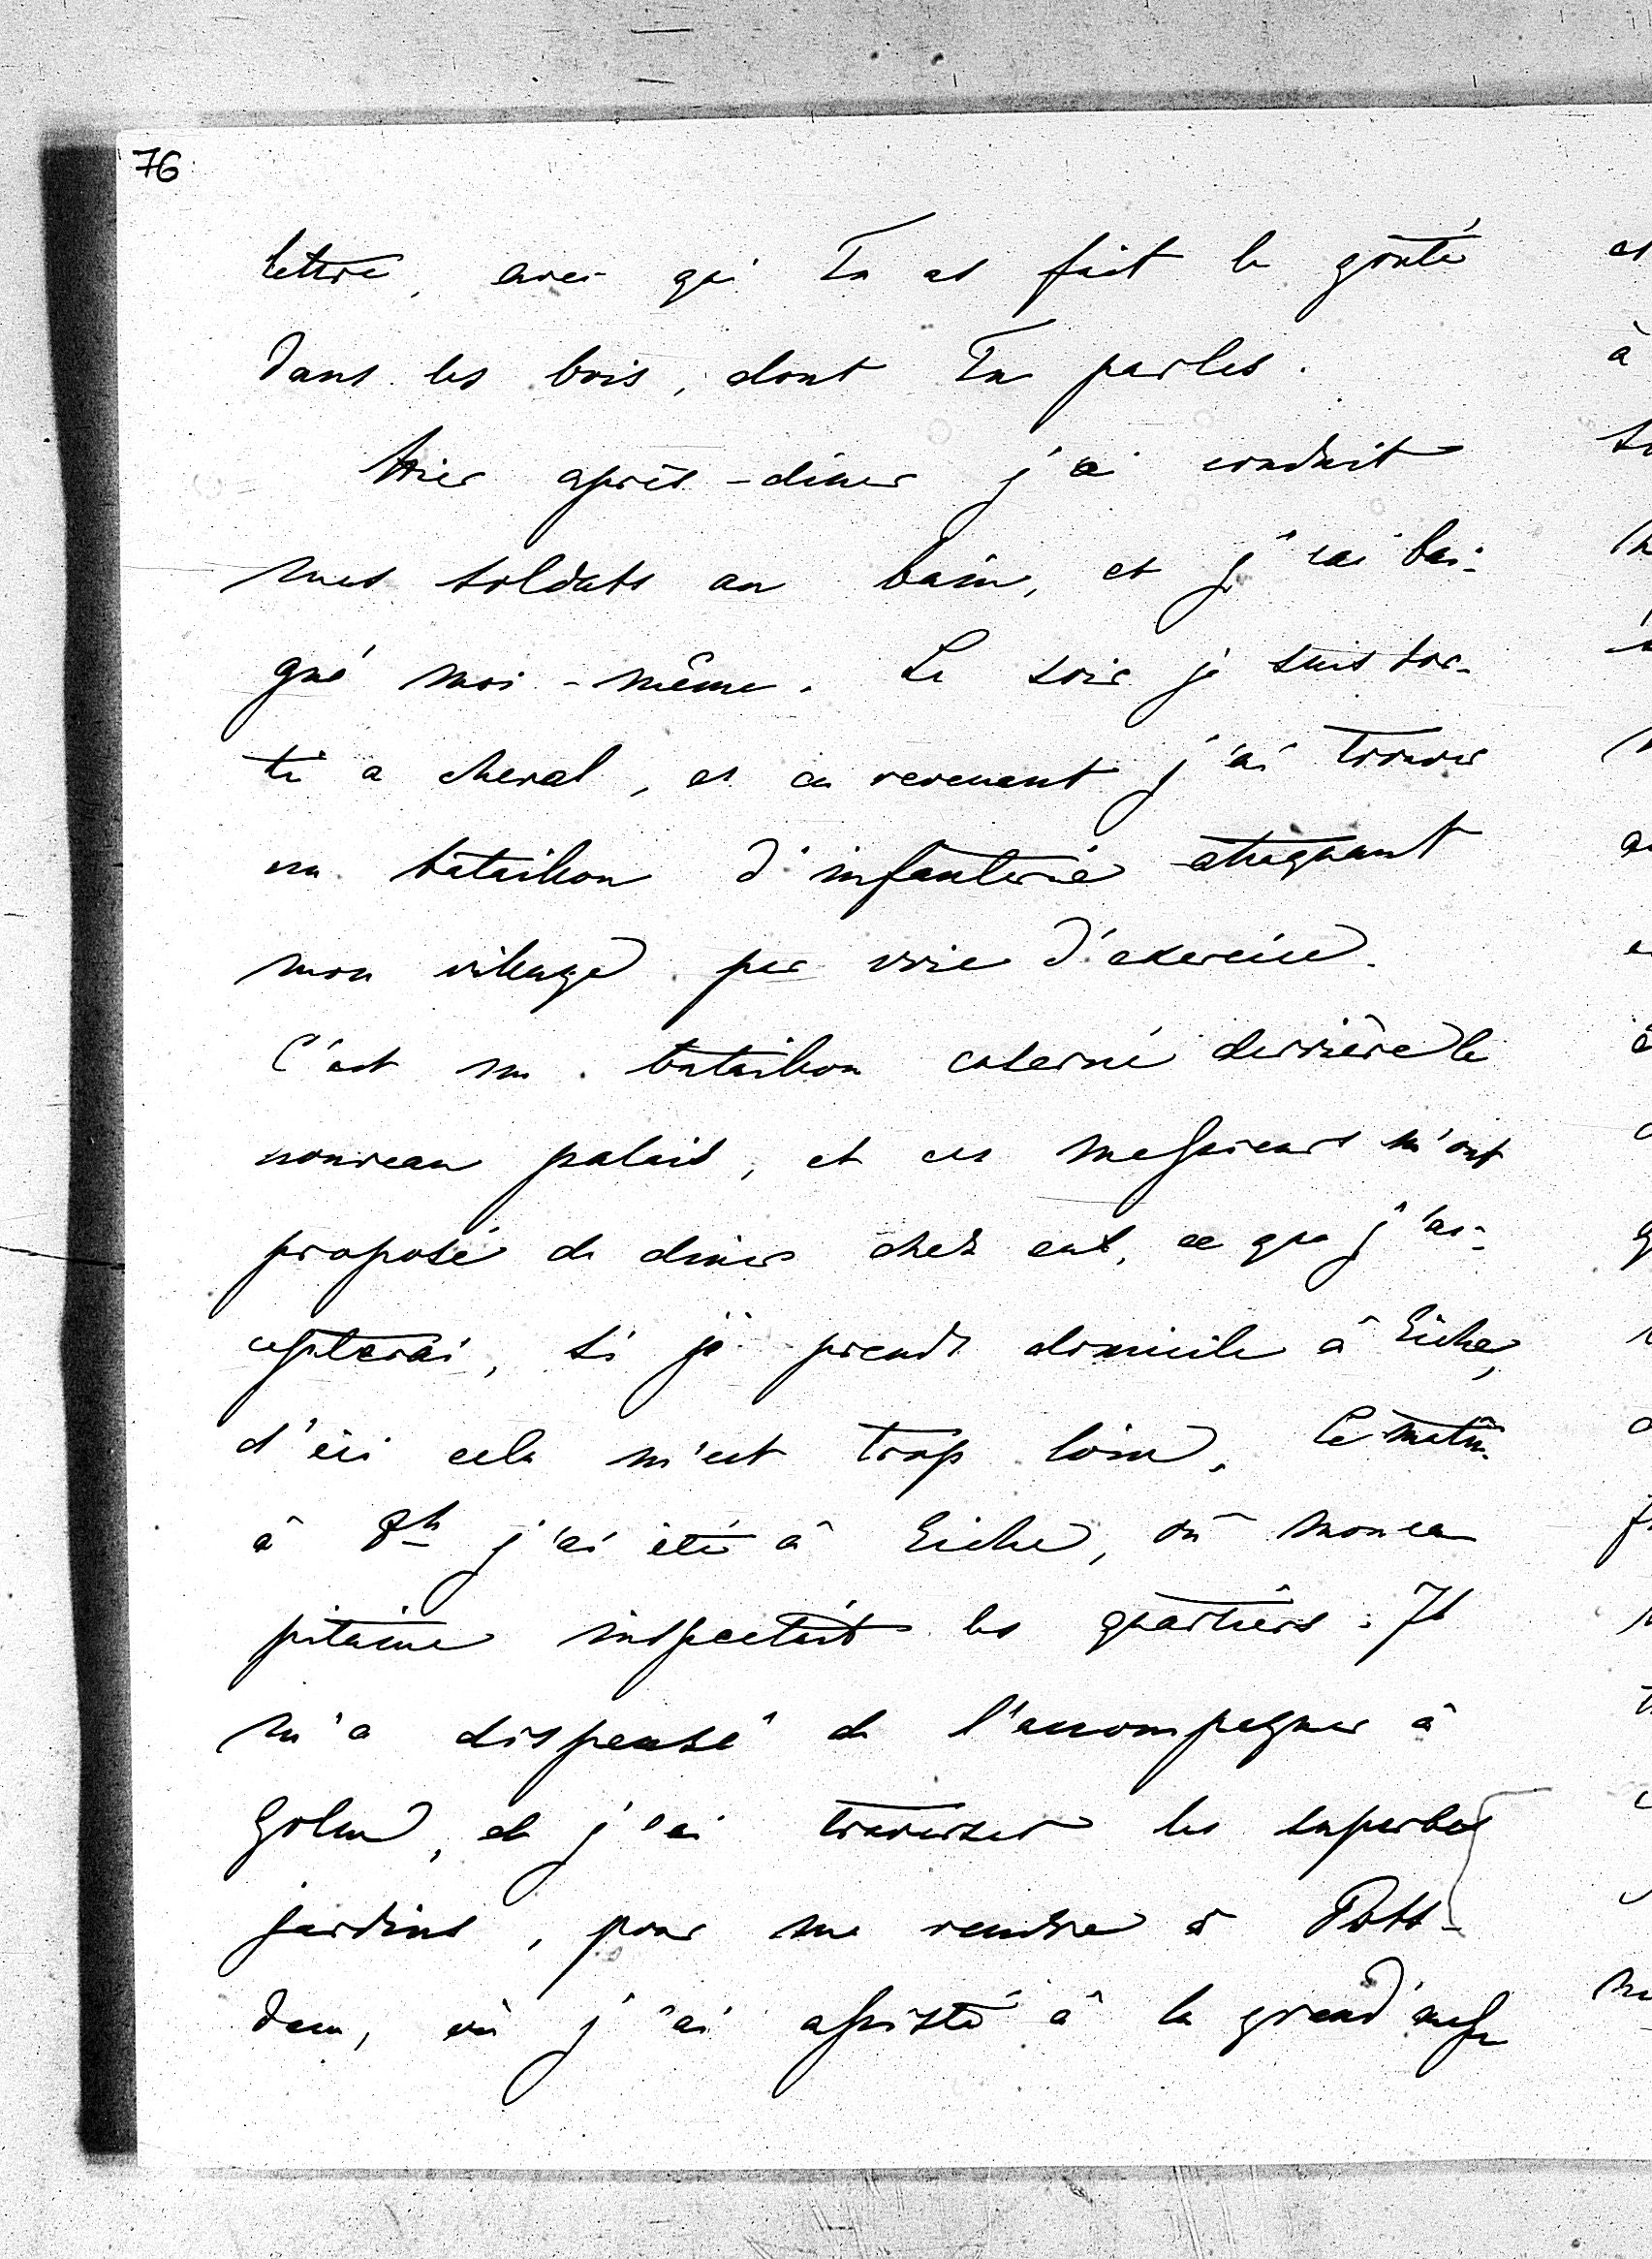 76
lettre, avec qui Tu as fait le goûté
dans les bois, dont Tu parles.
Hier après-dîner j'ai conduit
mes soldats au bain, et j'ai bai-
gné moi-même. Le soir je suis sor-
ti a cheval, et en revenant j'ai trouvé
un bataillon d'infanterie attaquant
mon village par voie d'exercice.
C'est un bataillon caserné derrière le
nouveau palais, et ces messieurs m'ont
proposé de dîner chez eux, ce que j'ac-
cepterai, si je prends domicile à Eiche,
d'ici cela m'est trop loin. Ce matin
à 8h j'ai été à Eiche, où mon ca
pitaine inspectait les quartiers. Il
m'a dispensé de l'accompagner à
Golm, et j'ai traversé les superbes
jardins, pour me rendre à Pots-
dam, où j'ai assisté à la grand'messe